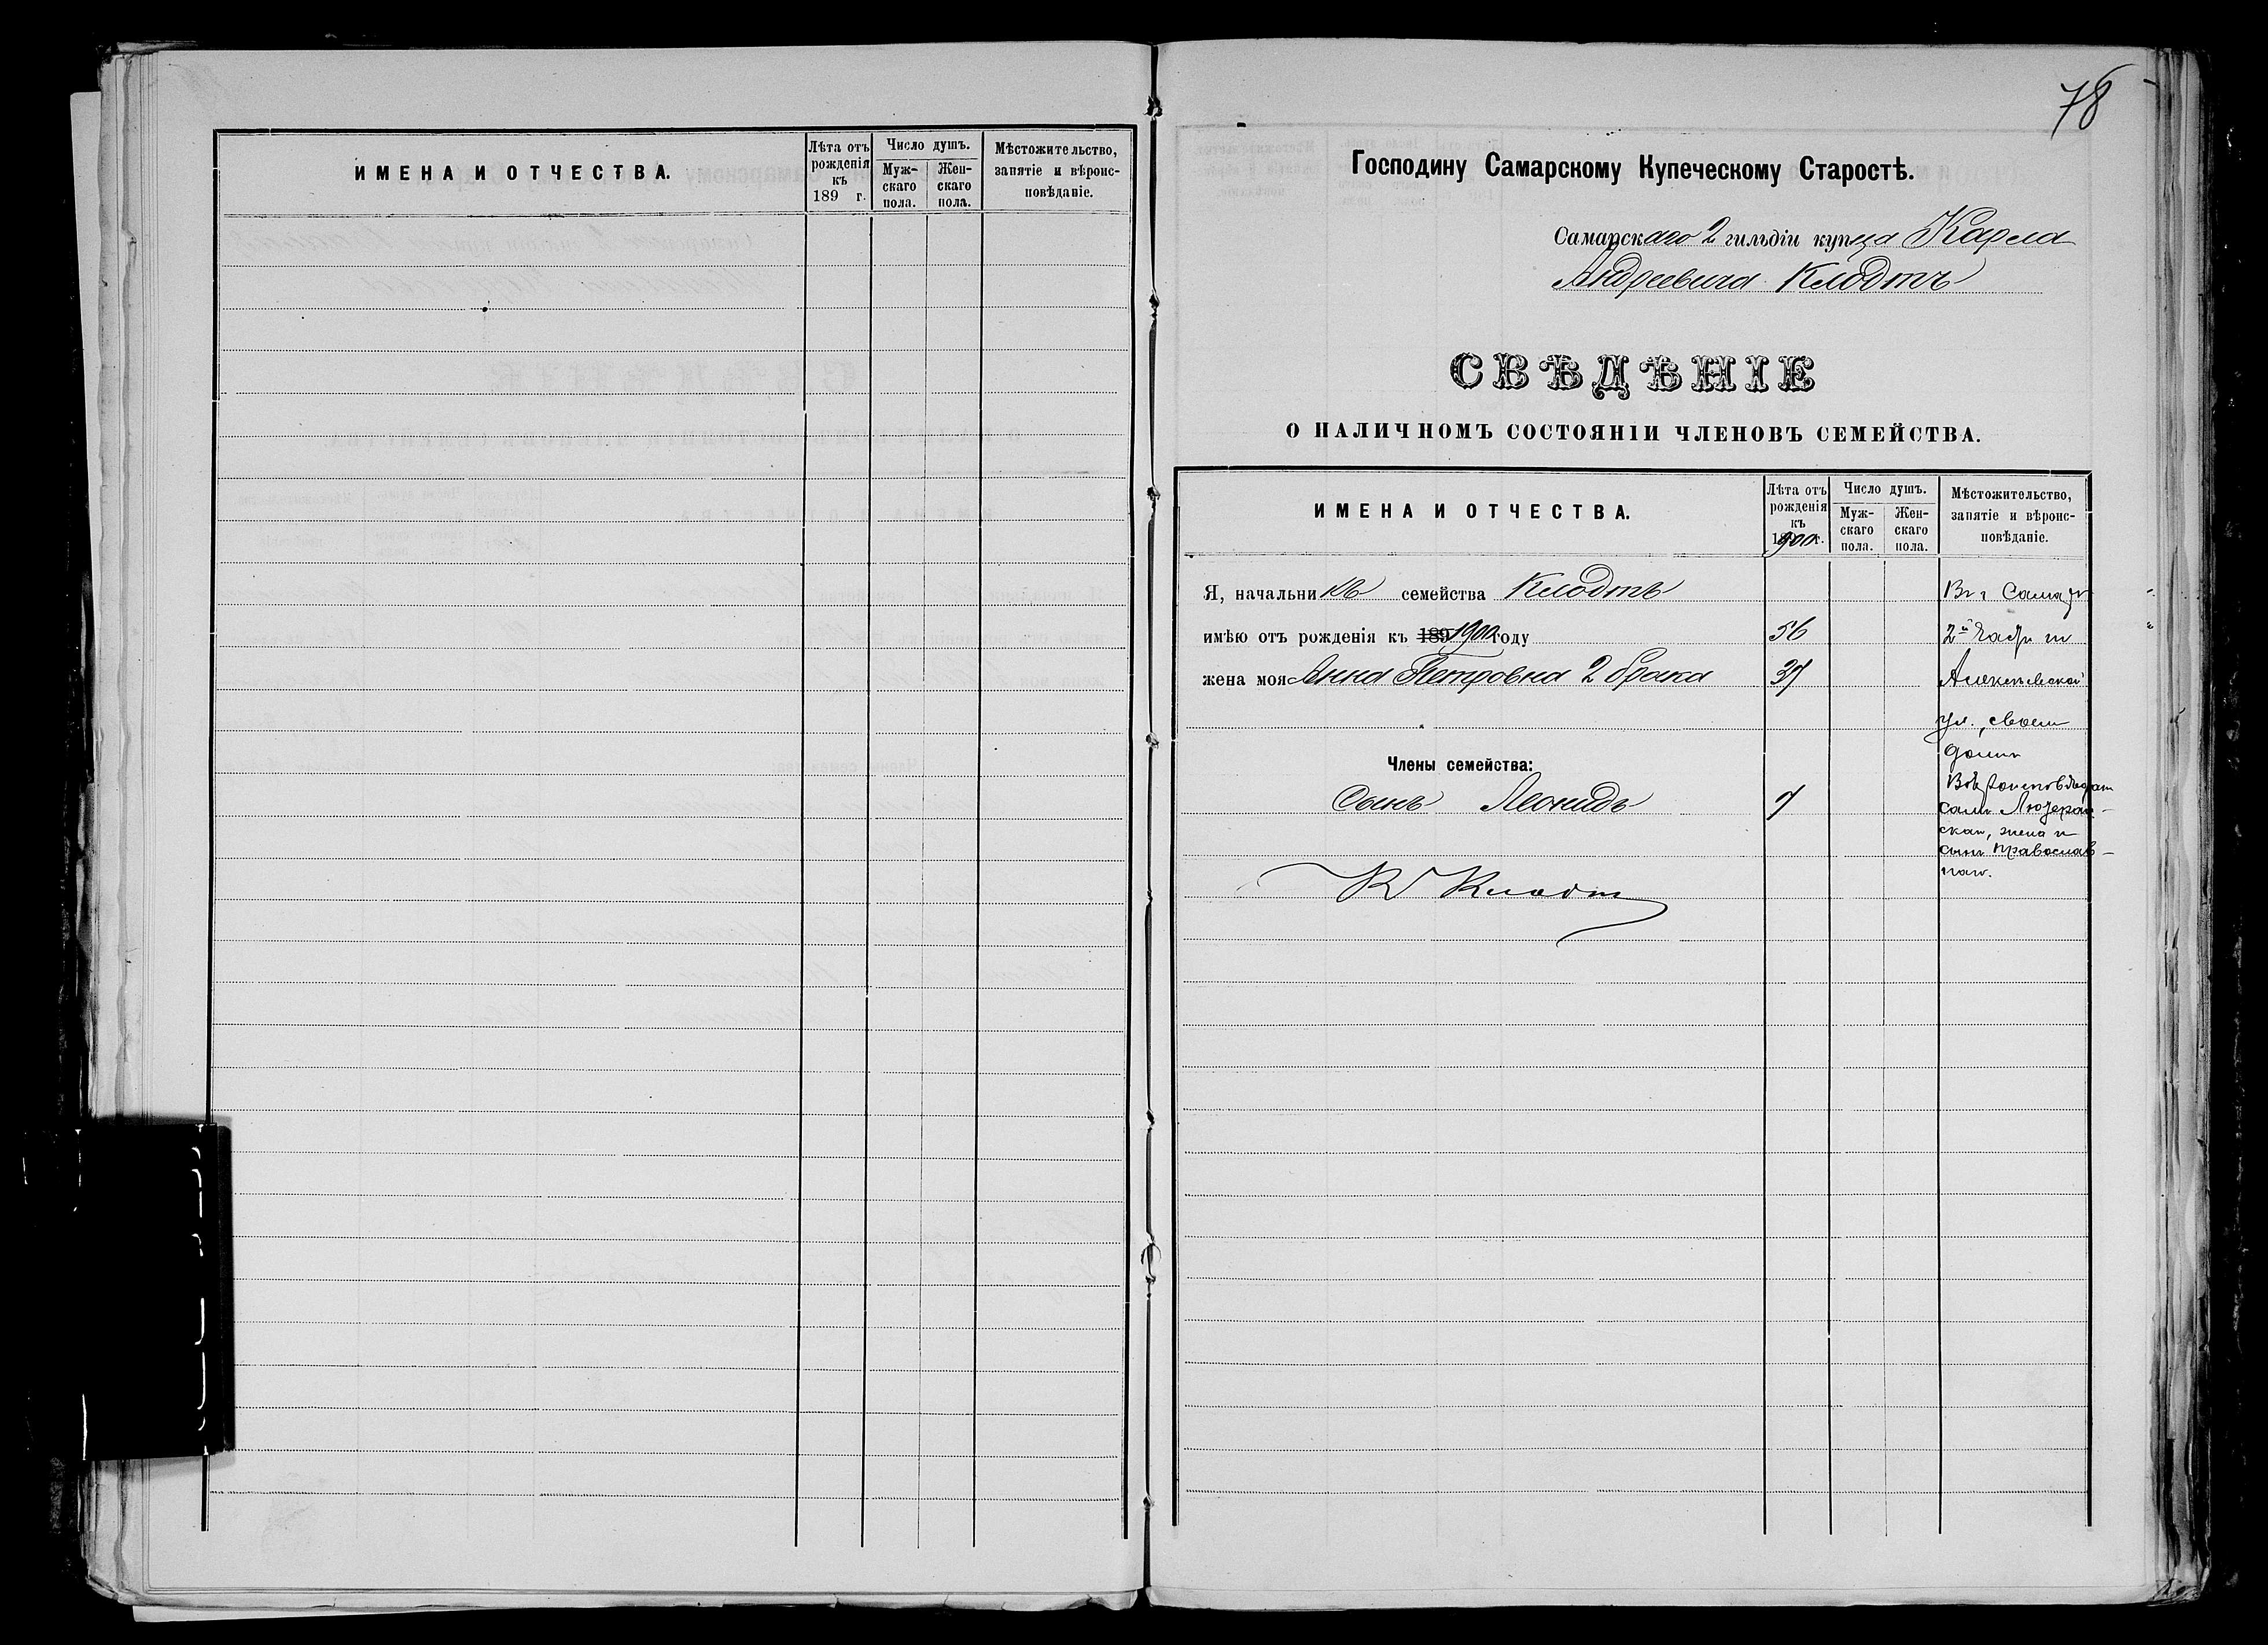 ИМЕНА И ОТЧЕСТВА.
Лѣта отъ
рожденія
къ
189 г.
Число душъ.
Муж-
скаго
пола.
Жен-
скаго
пола.
Мѣстожительство,
занятіе и вѣроис-
повѣданіе.
78
Господину Самарскому Купеческому Старостѣ.
Самарскаго 2 гильдіи купца Карла
Андреевича Клодтъ
СВѢДѢНІЕ
О НАЛИЧНОМЪ СОСТОЯНІИ ЧЛЕНОВЪ СЕМЕЙСТВА.
ИМЕНА И ОТЧЕСТВА.
Лѣта отъ
рожденія
къ
1900 г.
Число душъ.
Муж-
скаго
пола.
Жен-
скаго
пола.
Мѣстожительство,
занятіе и вѣроис-
повѣданіе.
Я, начальникъ семейства Клодтъ
Въ г Самарѣ
имѣю отъ рожденія къ 189 1900 году 56
2й части
жена моя Анна Петровна 2 брака 37
Алексѣевской
ул. своем
домѣ
Члены семейства:
Сынъ Леонидъ 7
самъ Лютеран-
ская, жена и
сынъ православ-
ная.
К Клодт